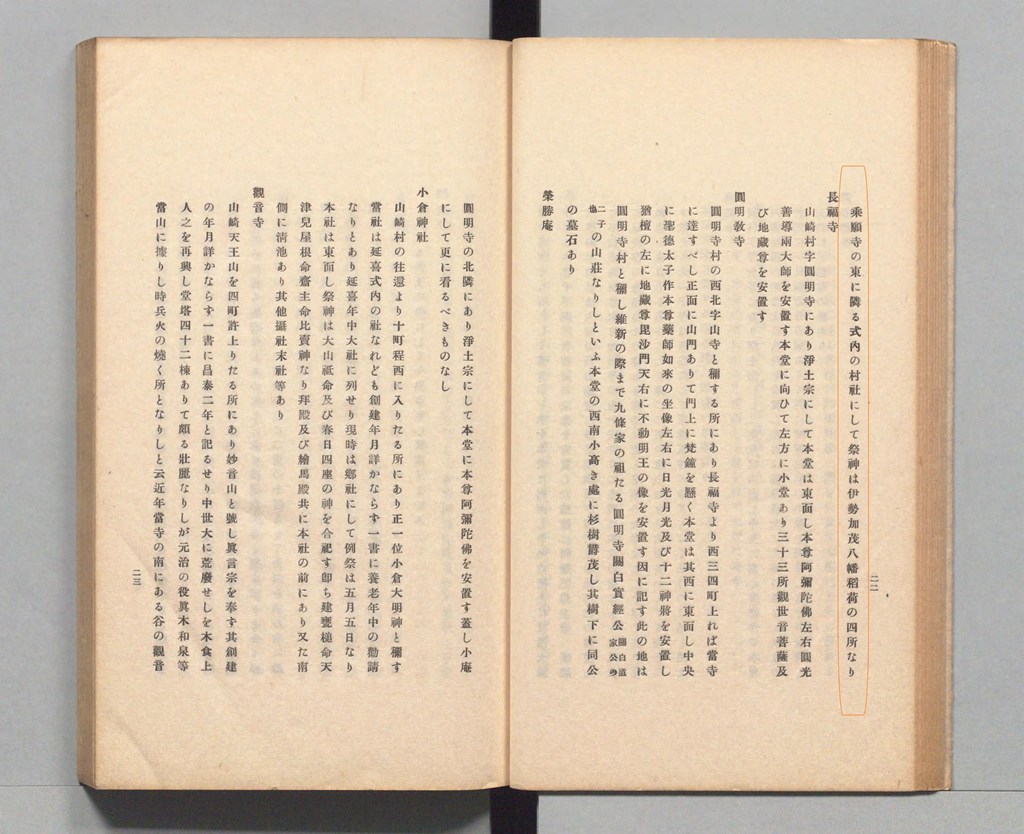 二二
乘願寺の東に隣る式内の村社にして祭神は伊勢加茂八幡稻荷の四所なり
長福寺
山崎村字圓明寺にあり淨土宗にして本堂は東面し本尊阿彌陀佛左右圓光
善導兩大師を安置す本堂に向ひて左方に小堂あり三十三所觀世音菩薩及
び地藏尊を安置す
圓明教寺
圓明寺村の西北字山寺と稱する所にあり長福寺より西三四町上れば當寺
に達すべし正面に山門ありて門上に梵鐘を懸く本堂は其西に東面し中央
に聖德太子作本尊藥師如來の坐像左右に日光月光及び十二神將を安置し
猶檀の左に地藏尊毘沙門天右に不動明王の像を安置す因に記す此の地は
圓明寺村と稱し維新の際まで九條家の祖たる圓明寺關白實經公關白道家公の
二子也の山莊なりしといふ本堂の西南小高き處に杉樹欝茂し其樹下に同公
の墓石あり
榮勝庵
圓明寺の北隣にあり淨土宗にして本堂に本尊阿彌陀佛を安置す蓋し小庵
にして更に看るべきものなし
小倉神社
山崎村の往還より十町程西に入りたる所にあり正一位小倉大明神と稱す
當社は延喜式内の社なれども創建年月詳かならず一書に養老年中の勸請
なりとあり延喜年中大社に列せり現時は鄕社にして例祭は五月五日なり
本社は東面し祭神は大山祗命及び春日四座の神を合祀す卽ち建甕槌命天
津兒屋根命齋主命比賣神なり拜殿及び繪馬殿共に本社の前にあり又た南
側に淸池あり其他攝社末社等あり
觀音寺
山崎天王山を四町許上りたる所にあり妙音山と號し眞言宗を奉ず其創建
の年月詳かならず一書に昌泰二年と記るせり中世大に荒廢せしを木食上
人之を再興し堂塔四十二棟ありて頗る壯麗なりしが元治の役眞木和泉等
當山に據りし時兵火の燒く所となりしと云近年當寺の南にある谷の觀音
二三